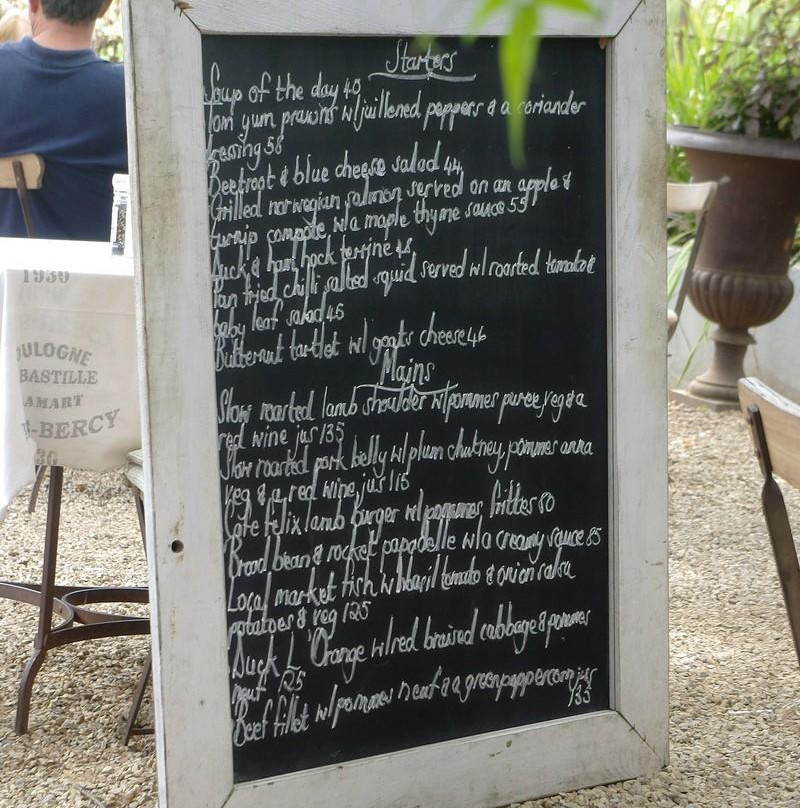 Starters
Soup of the day 40
Tom yum prawns w/ juillened peppers & a coriander
dressing 56
Beetroot & blue cheese salad 44
Grilled norwegian salmon served on an apple &
turnip compote w/a maple thyme sauce 55
Duck & ham hock terrine 48
Pan fried chilli salted squid served w/ roasted tomato &
baby leaf salad 45
Butternut tartlet w/ goats cheese 46
Mains
Slow roasted lamb shoulder w/pommes puree, veg & a
red wine jus 135
Slow roasted pork belly w/ plum chutney, pommes anna
veg & a red wine jus 115
Cafe felix lamb burger w/ pommes fritter 80
Broad bean & rocket papadelle w/a creamy sauce 85
Local market fish w/ basil tomato & onion salsa
potatoes & veg 125
Duck L 'Orange w/red braised cabbage & pommes
neuf 125
Beef fillet w/pommes neuf & a green peppercorn jus
135
1930
OULOGNE
BASTILLE
AMART
-BERCY
30